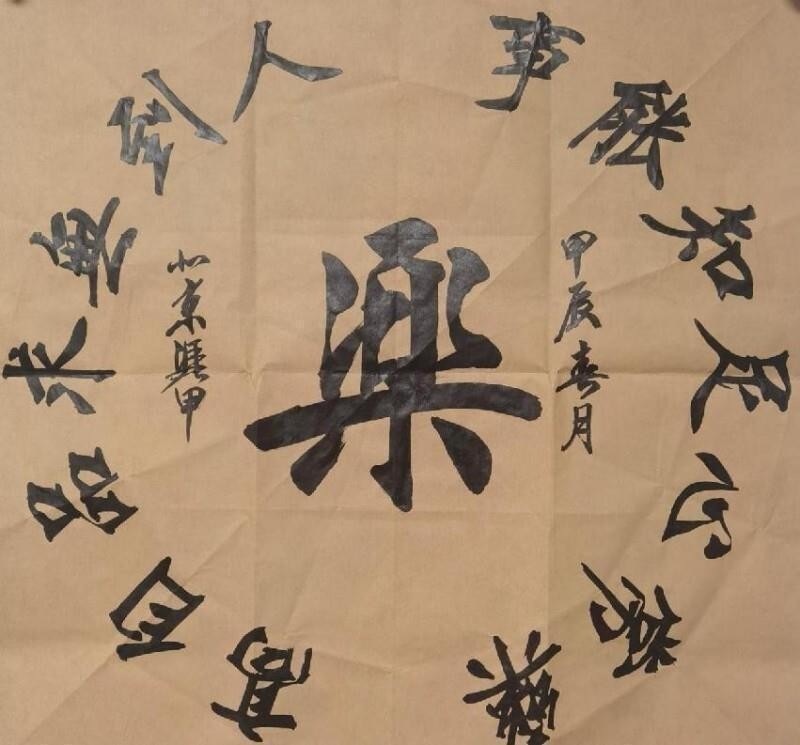 事能知足心常樂
人到無求品自高
楽
甲辰春月
北京 甲